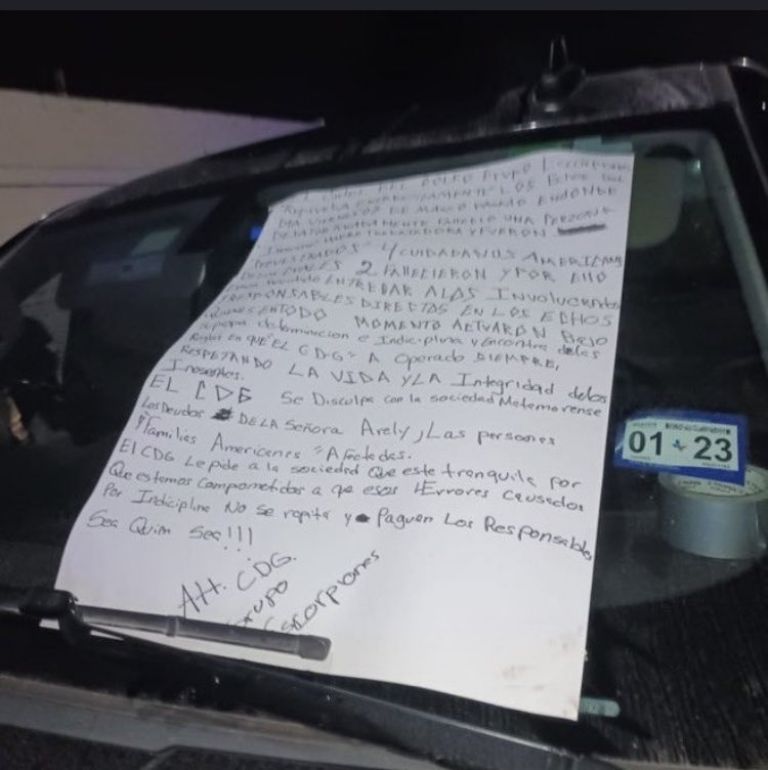 CDG DEL GOLFO GRUPO Escorpiones
Reprueba ENERGICAMENTE LOS Echos del
DIA VIERNES 03 DE MARZO ENDONDE
INVOLUNTARIAMENTE FALLECIO UNA PERSONA
Inocente MADRE TRABAJADORA Y FUERON
SECUESTRADOS 4 CUIDADANOS AMERICANOS
DE LOS CUALES 2 FALLECIERON Y POR ELLO
ENTREGAR ALAS Involucrados
RESPONSABLES DIRECTAS EN LOS ECHOS
QUIENES EN TODO MOMENTO ACTUARÓN BAJO
determinacion e Indiciplina y Encontra delas
Reglas EN QUE "EL CDG" A Operado SIEMPRE,
RESPETANDO LA VIDA Y LA Integridad delos
Inosentes.
EL CDG Se Disculpa con la sociedad Matamorense
Los Deudos DE LA Señora Arely, Las personas
Y Familias Americanas "Afectadas.
El CDG Le pide a la sociedad Que este tranquila por
Que estamos Comprometidos a qe esos Errores causados
Por Indiciplina No Se rapita y Paguen Los Responsables,
Sea Quien Sea!!!
Att. CDG.
Grupo
Escorpiones
01 23